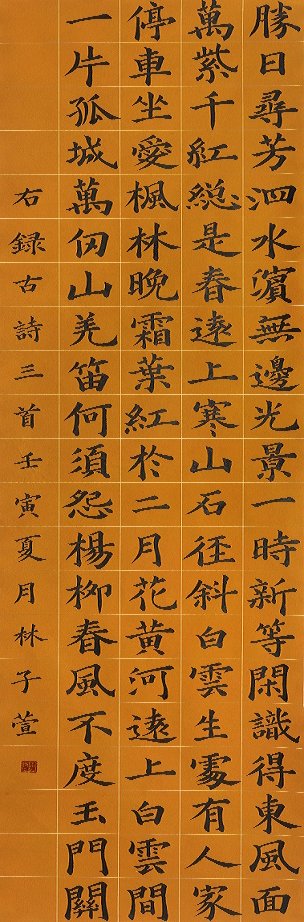 勝日尋芳泗水濱無邊光景一時新等閑識得東風面
萬紫千紅総是春遠上寒山石徑斜白雲生處有人家
停車坐愛楓林晚霜葉紅於二月花黃河遠上白雲間
一片孤城萬仞山羌笛何須怨楊柳春風不度玉門關
右錄古詩三首壬寅夏月林子萱